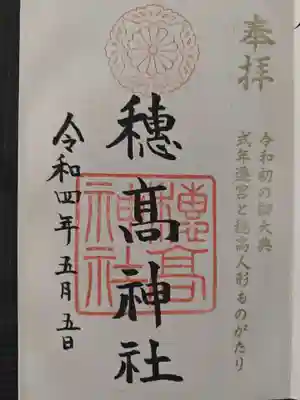 奉拝
令和初の御大典
式年遷宮と穂高人形ものがたり
穂髙神社
穂髙神社
令和四年五月五日